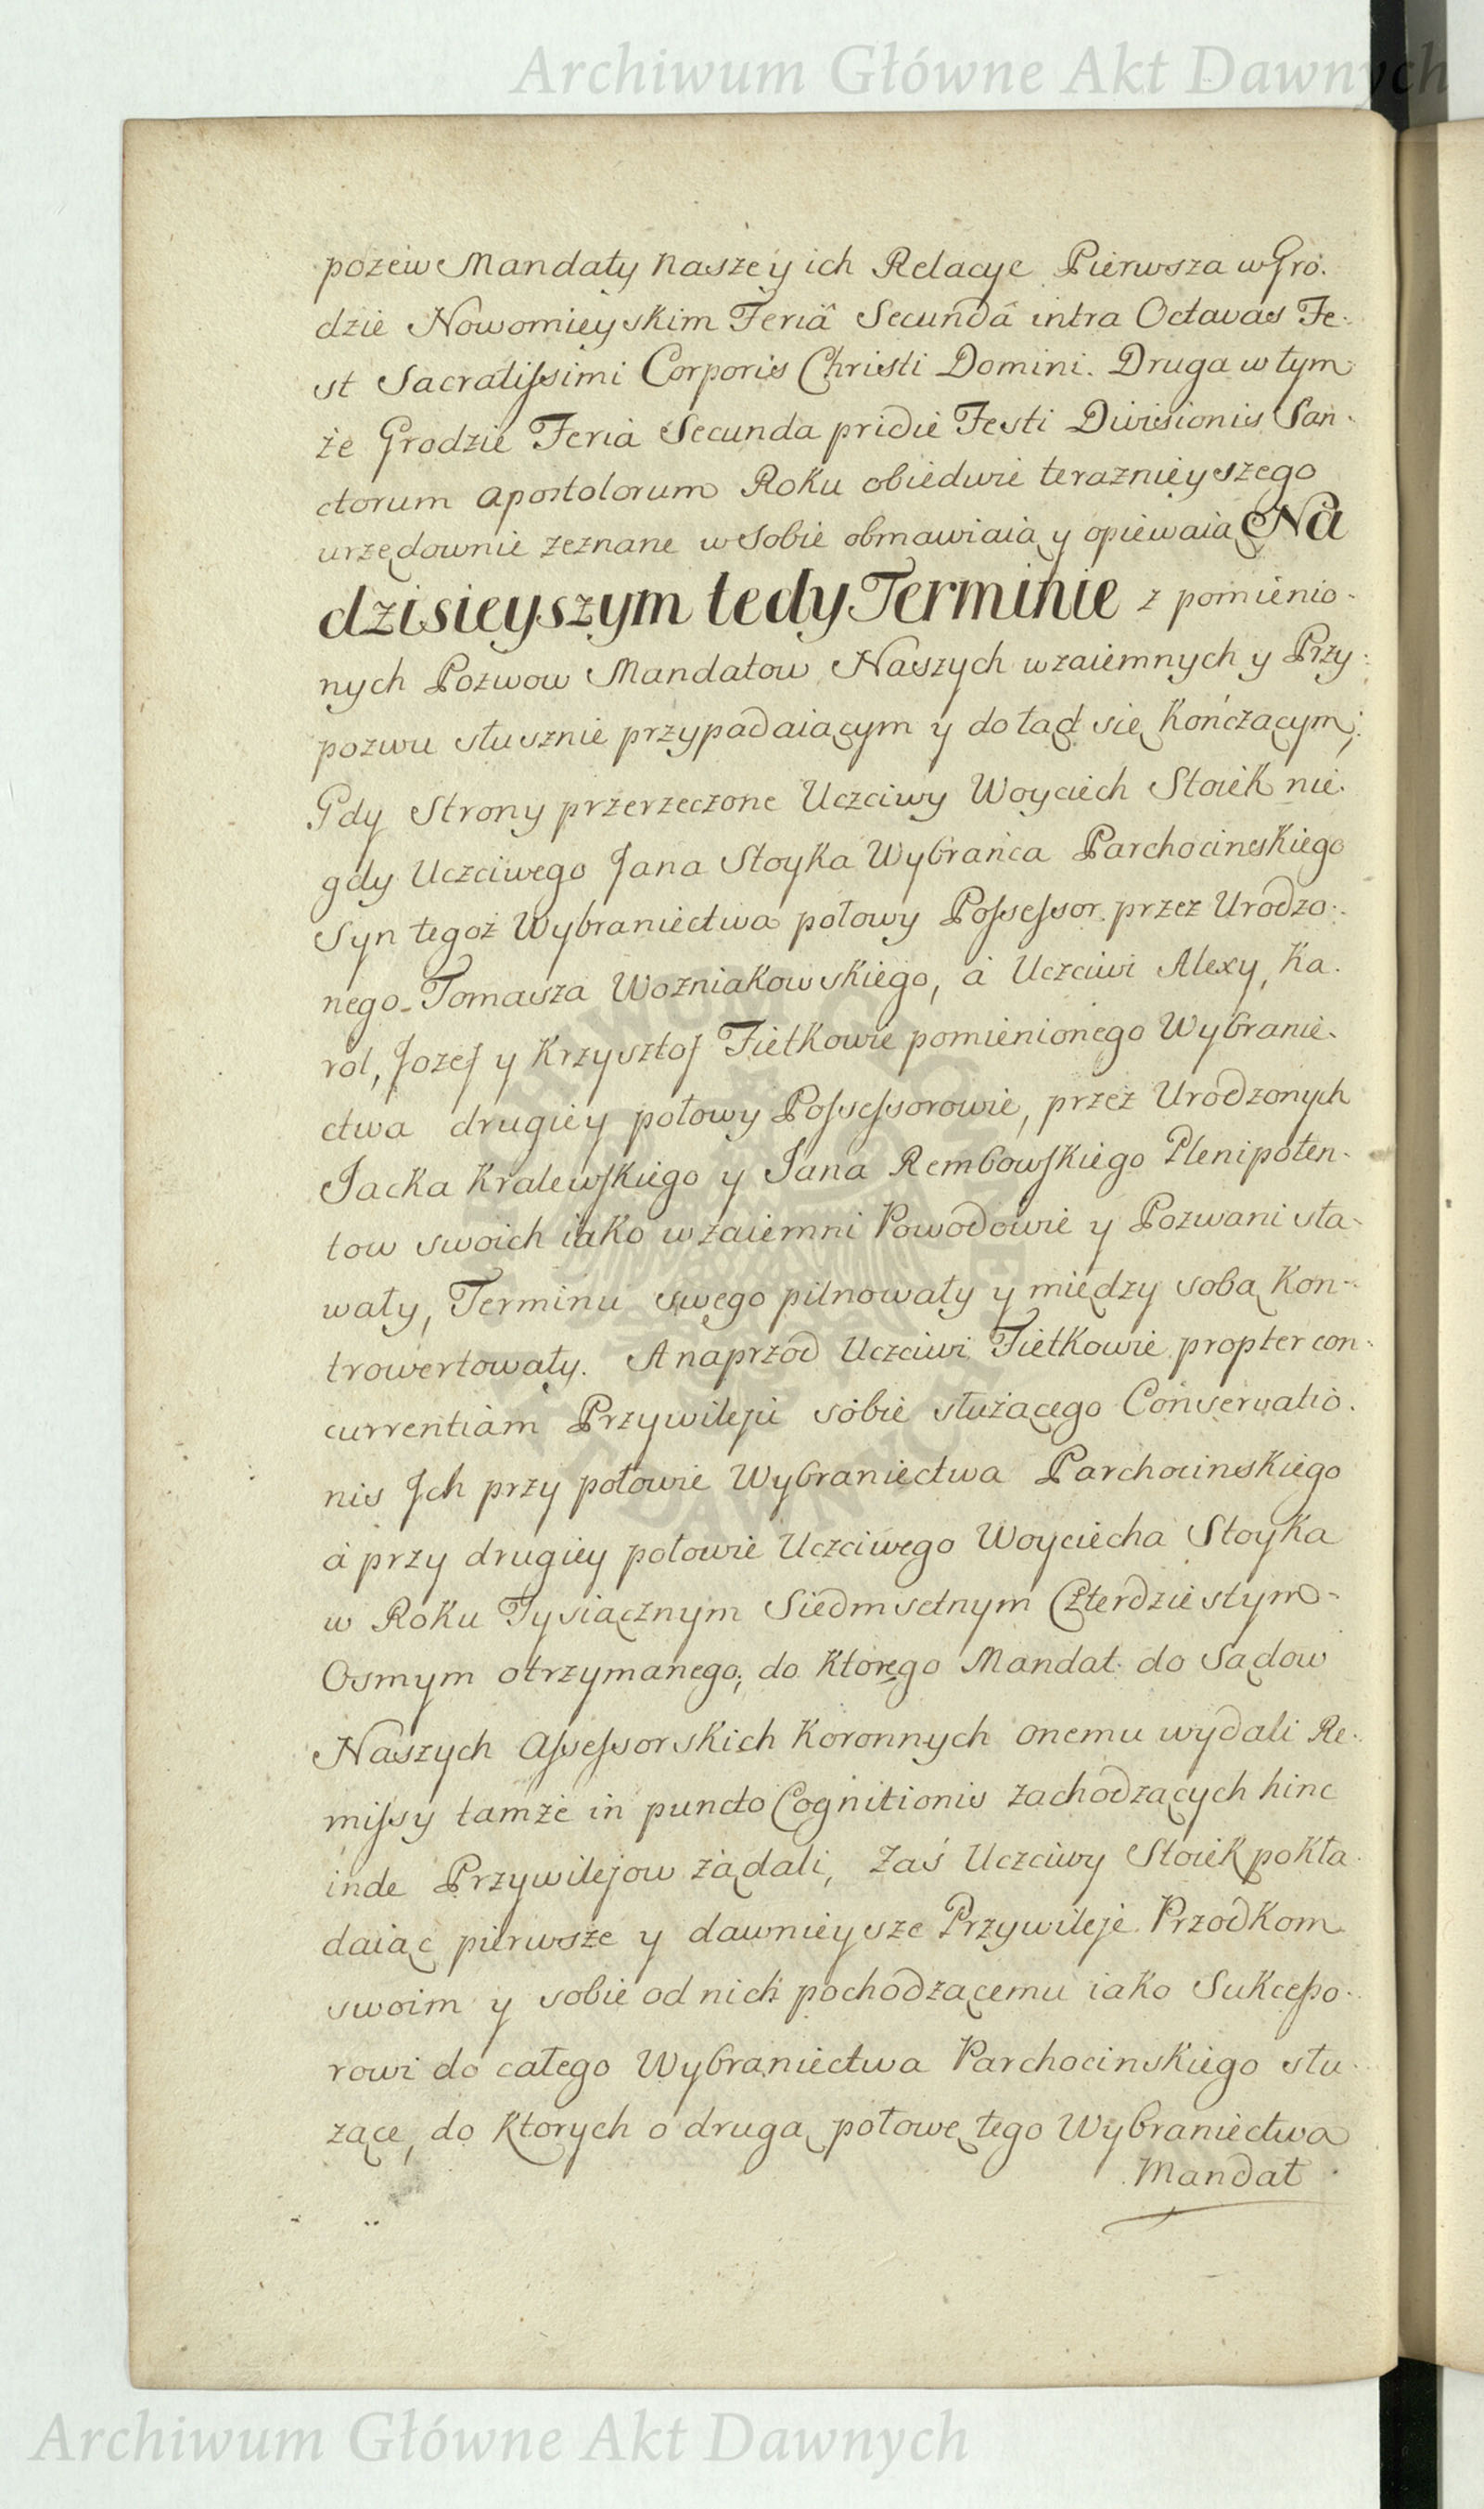 Archiwum Główne Akt Dawnych
pozew Mandaty naszey ich Relacye Pierwsza w Gro.
dzie Nowomieyskim Feriâ Secundâ intra Octavas Fe.
st Sacratissimi Corporis Christi Domini. Druga w tym
że Grodzie Feria Secunda pridie Festi Divisionis San.
ctorum Apostolorum Roku obiedwie teraznieyszego
urzędownie zeznane w sobie obmawiaią y opiewaią Na
dzisieyszym tedy Terminie z pomienio.
nych Pozwow Mandatow Naszych wzaiemnych y Przy.
pozwu słusznie przypadaiącym y dotąd się kończącym;
Gdy Strony przerzeczone Uczciwy Woyciech Stoiek nie.
gdy Uczciwego Jana Stoyka Wybrańca Parchocinskiego
Syn tegoż Wybraniectwa połowy Possessor przez Urodzo.
nego Tomasza Wozniakowskiego, à Uczciwi Alexy, Ka.
rol, Jozef y Krzysztof Fietkowie pomienionego Wybranie.
ctwa drugiey połowy Possessorowie, przez Urodzonych
Jacka Kralewskiego y Jana Rembowskiego Plenipoten.
tow swoich iako wzaiemni Powodowie y Pozwani sta.
wały, Terminu swego pilnowały y między sobą kon.
trowertowały. A naprzod Uczciwi Fietkowie propter con.
currentiam Przywileju sobie służącego Conservatio.
nis Ich przy połowie Wybraniectwa Parchocinskiego
à przy drugiey połowie Uczciwego Woyciecha Stoyka
w Roku Tysiącznym Siedmsetnym Czterdziestym
Osmym otrzymanego; do ktorego Mandat do Sądow
Naszych Assessorskich Koronnych onemu wydali Re.
missy tamże in puncto Cognitionis zachodzących hinc
inde Przywilejow żądali, Zaś Uczciwy Stoiek pokła.
daiąc pierwsze y dawnieysze Przywileje Przodkom
swoim y sobie od nich pochodzącemu iako Sukcesso.
rowi do całego Wybraniectwa Parchocinskiego słu.
zące, do ktorych o drugą połowę tego Wybraniectwa
Mandat
Archiwum Główne Akt Dawnych